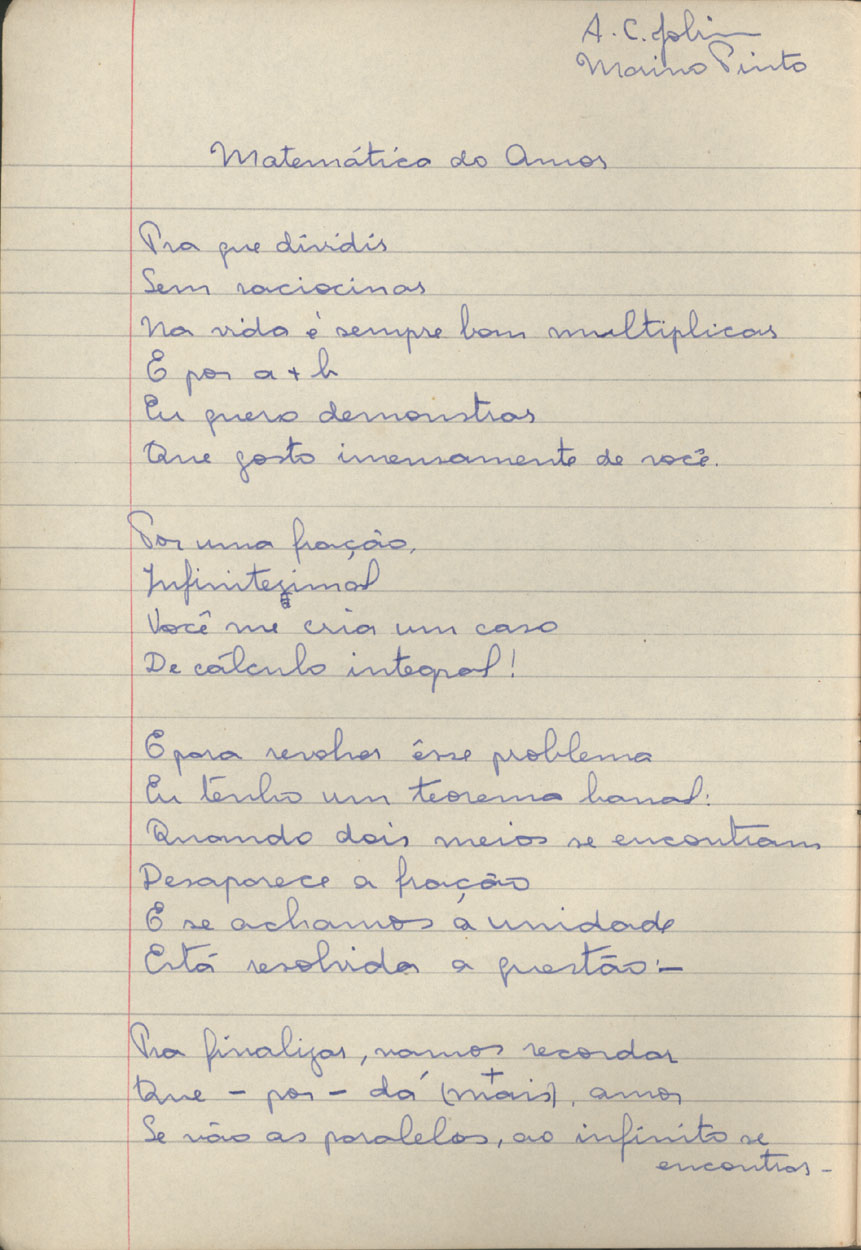 A. C. Jobim
Marino Pinto
Matemática do Amor
Pra que dividir
Sem raciocinar
Na vida é sempre bom multiplicar
E por a + b
Eu quero demonstrar
Que gosto imensamente de você.
Por uma fração,
Infinitezimal
s
Você me cria um caso
De cálculo integral!
E para resolver êsse problema
Eu tenho um teorema banal:
Quando dois meios se encontram
Desaparece a fração
E se achamos a unidade
Está resolvida a questão:-
Pra finalizar, vamos recordar
+
Que - por - dá (mais), amor
Se vão as paralelas, ao infinito se
encontrar -